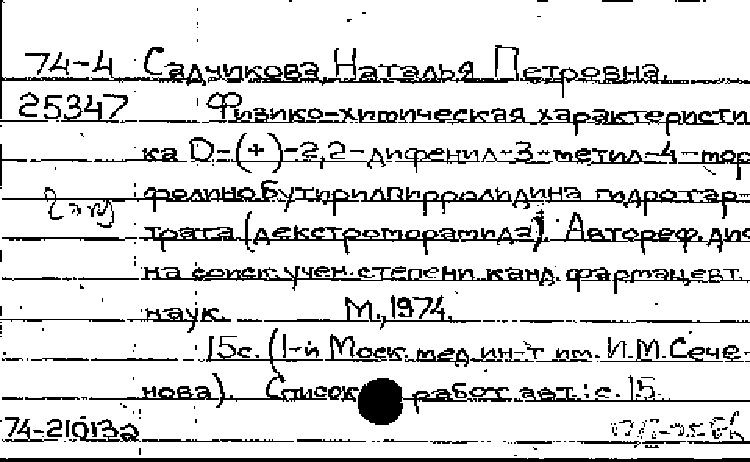 74-4 Садчикова, Наталья Петровна.
25347 Физико-химическая характеристи
ка D-(+)-2,2-дифенил-3-метил-4-мор
фолинобутирилпирролидина гидротар-
трата (декстроморамида). Автореф. дис
на соиск. учен. степени канд. фармацевт.
наук. М., 1974.
15с. (1-й Моск. мед. ин-т им. И.М. Сече-
нова). Список работ авт.: с. 15.
74-21013а